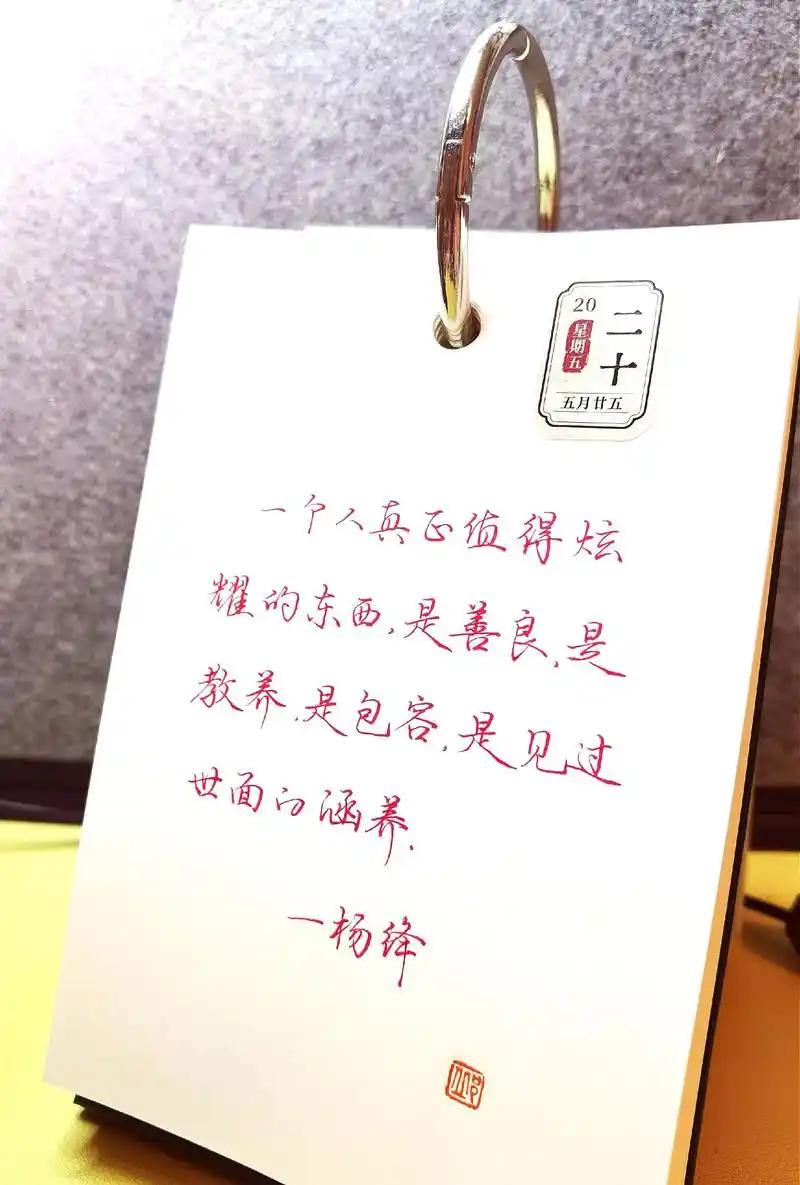 20
二十
星期五
五月廿五
一个人真正值得炫
耀的东西,是善良,是
教养,是包容,是见过
世面的涵养.
—杨绛